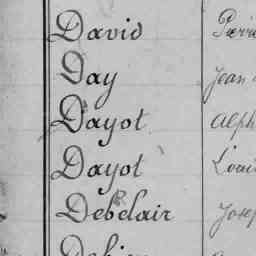 David Pierre
Day Jean
Dayot Alph
Dayot Louis
Debelair Josep